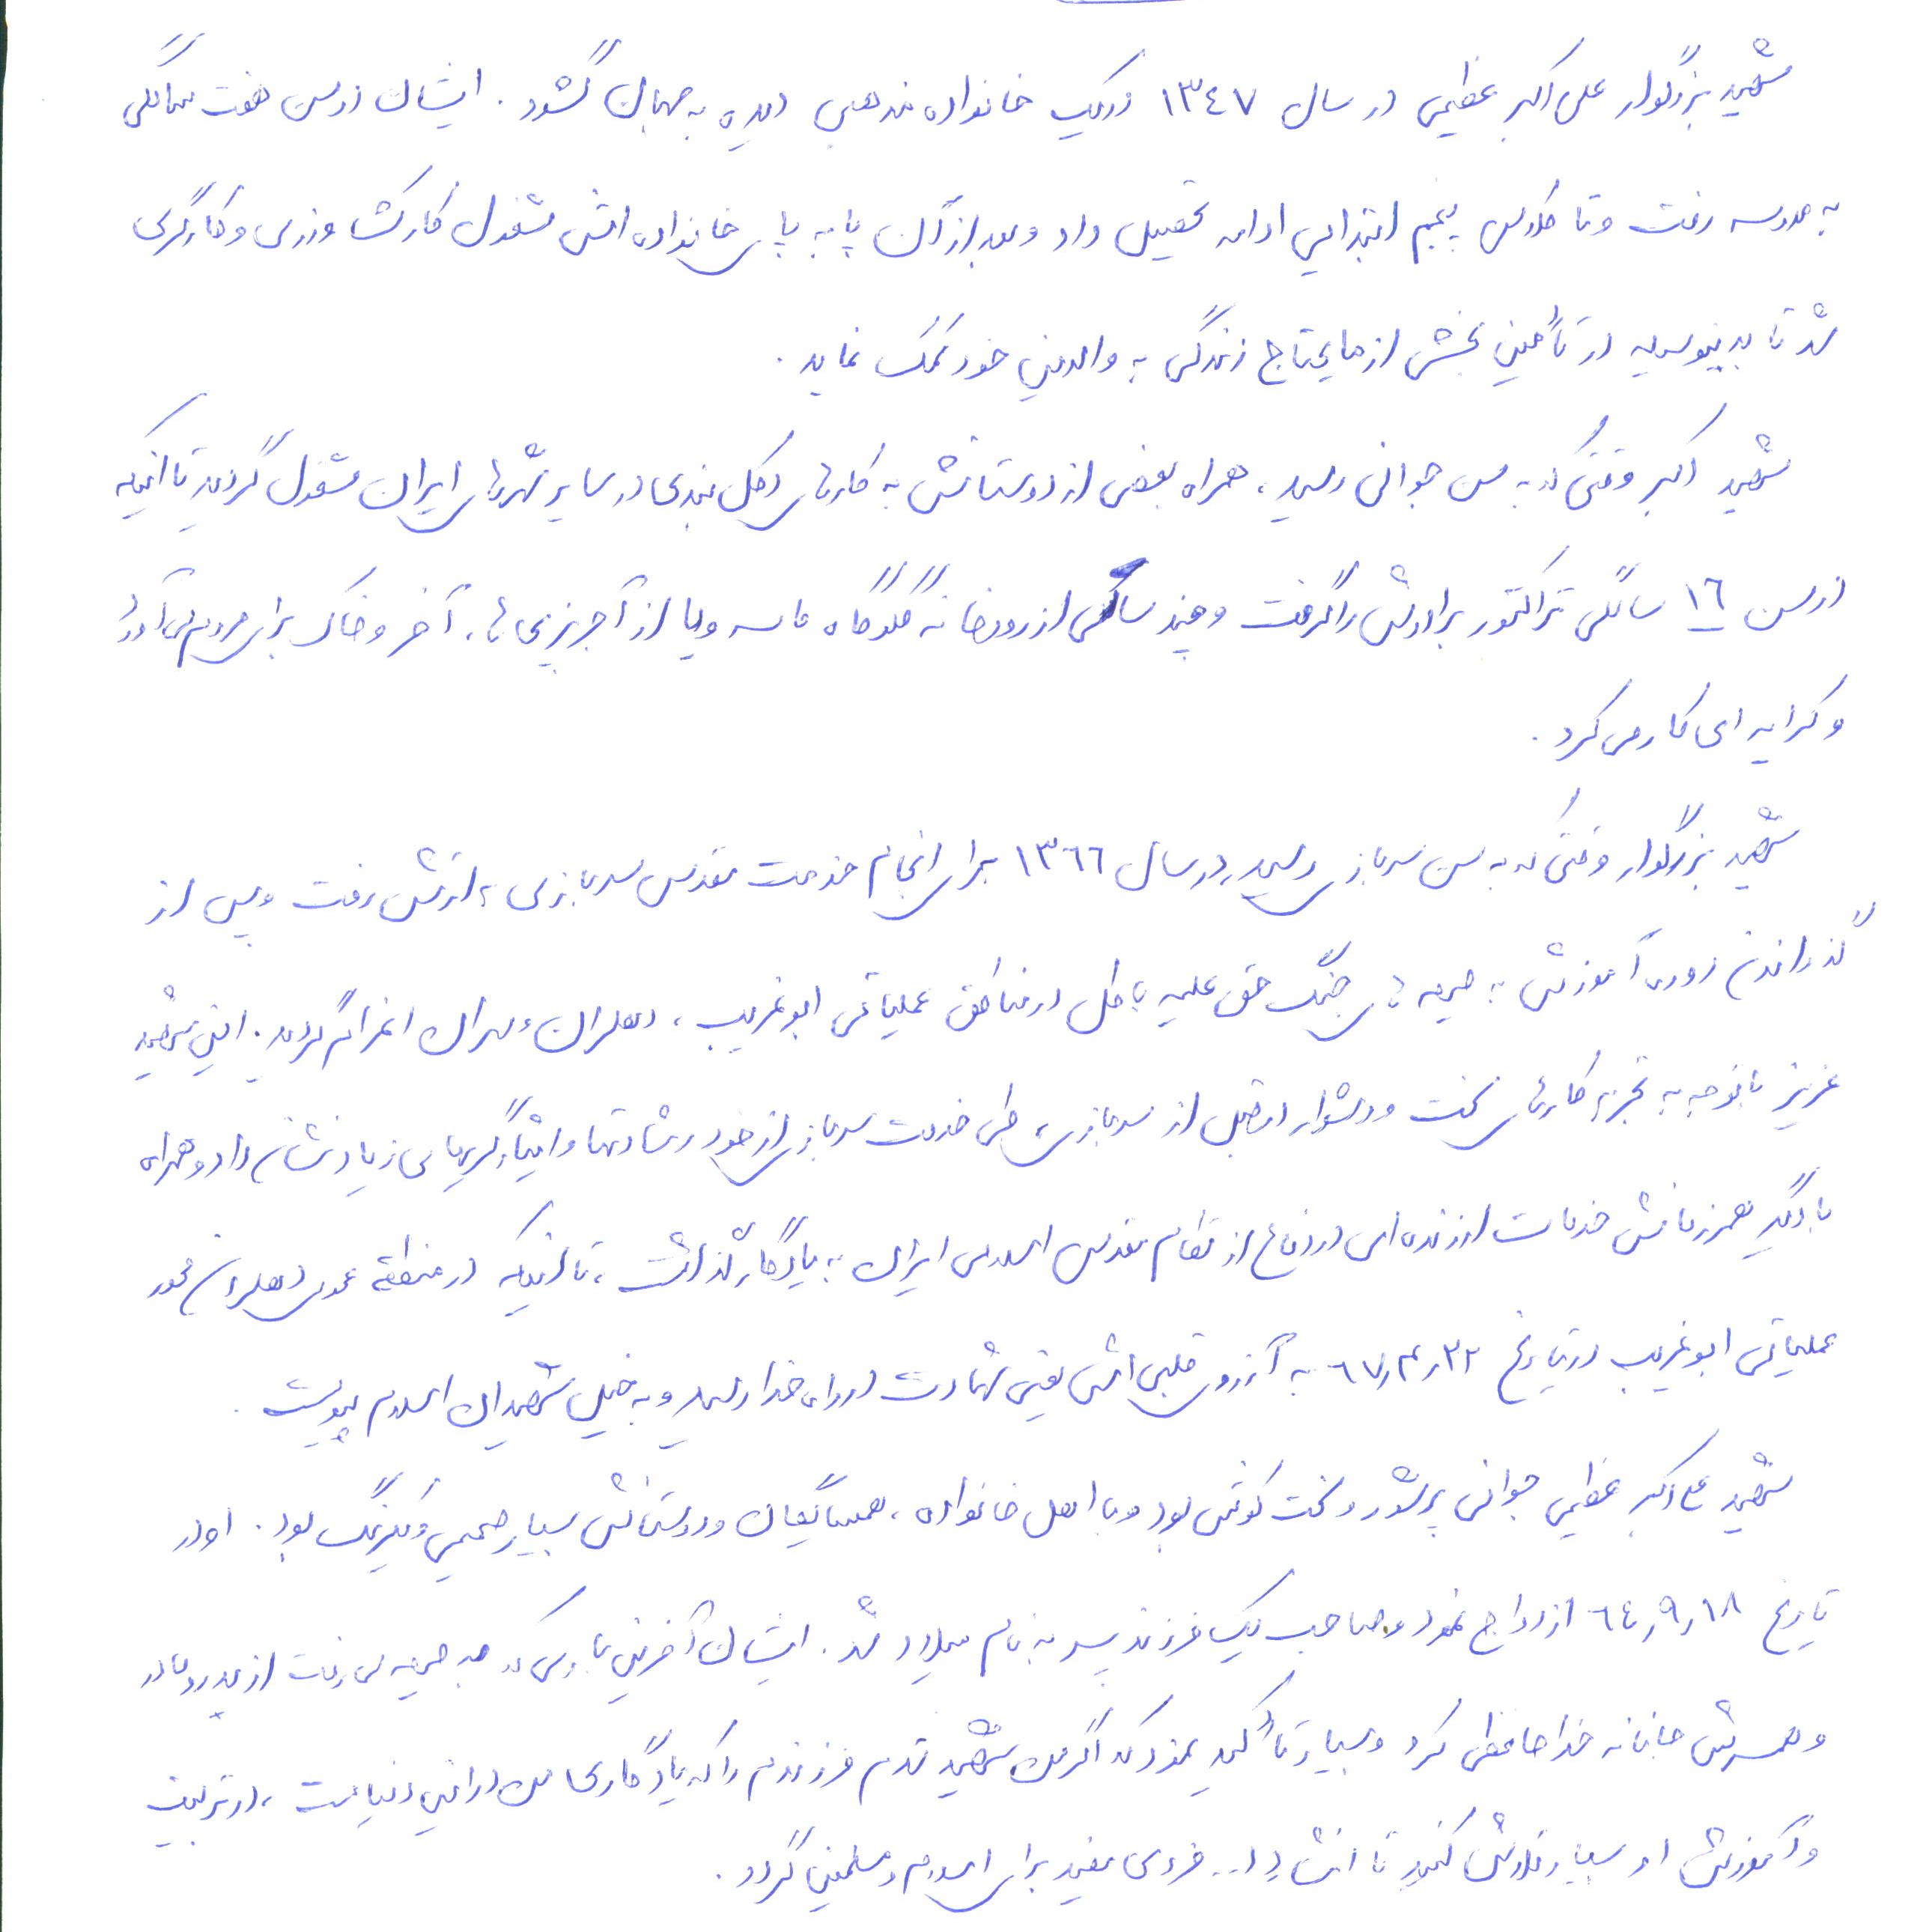 شهید بزرگوار علی اکبر عظیمی در سال ۱۳٤۷ در یک خانواده مذهبی دیده به جهان گشود. ایشان در سن هفت سالگی
به مدرسه رفت و تا کلاس پنجم ابتدایی ادامه تحصیل داد و بعد از آن پا به پای خانواده اش مشغول کار کشاورزی و کارگری
شد تا بدینوسیله در تأمین بخشی از مایحتاج زندگی به والدین خود کمک نماید.
شهید اکبر وقتی که به سن جوانی رسید، همراه بعضی از دوستانش به کارهای دکل بندی در سایر شهرهای ایران مشغول گردید تا اینکه
در سن ۱٦ سالگی تراکتور برادرش را گرفت و چند سالی از رودخانه گلوگاه ماسه و یا از آجرپزی ها، آجر و خاک برای مردم می آورد
و کرایه ای کار می کرد.
شهید بزرگوار وقتی که به سن سربازی رسید، در سال ۱۳٦٦ برای انجام خدمت مقدس سربازی به ارتش رفت و پس از
گذراندن دوره آموزشی به جبهه های جنگ حق علیه باطل در مناطق عملیاتی ابوغریب، دهلران، مهران اعزام گردید. این شهید
عزیز با توجه به تجربه کارهای سخت و دشوار در قبل از سربازی، طی خدمت سربازی از خود رشادتها و ایثارگریهای زیاد نشان داد و همراه
با دیگر همرزمانش خدمات ارزنده ای در دفاع از نظام مقدس اسلامی ایران به یادگار گذاشت، تا اینکه در منطقه عمومی دهلران محور
عملیاتی ابوغریب در تاریخ ٦۷ به آرزوی قلبی اش یعنی شهادت در راه خدا رسید و به خیل شهیدان اسلام پیوست.
شهید علی اکبر عظیمی جوانی پرشور و سخت کوش بود و با اهل خانواده، همسایگان و دوستانش بسیار صمیمی و یکرنگ بود. او در
تاریخ ٦٤٫۹٫۱۸ ازدواج نمود و صاحب یک فرزند پسر به نام میلاد شد. ایشان آخرین باری که به جبهه می رفت از پدر و مادر
و همسرش جانانه خداحافظی کرد و بسیار تأکید نمود که اگر من شهید شدم فرزندم را که یادگاری من در این دنیاست، در تربیت
و آموزش او بسیار تلاش کنید تا انشاءا... فردی مفید برای اسلام و مسلمین گردد.